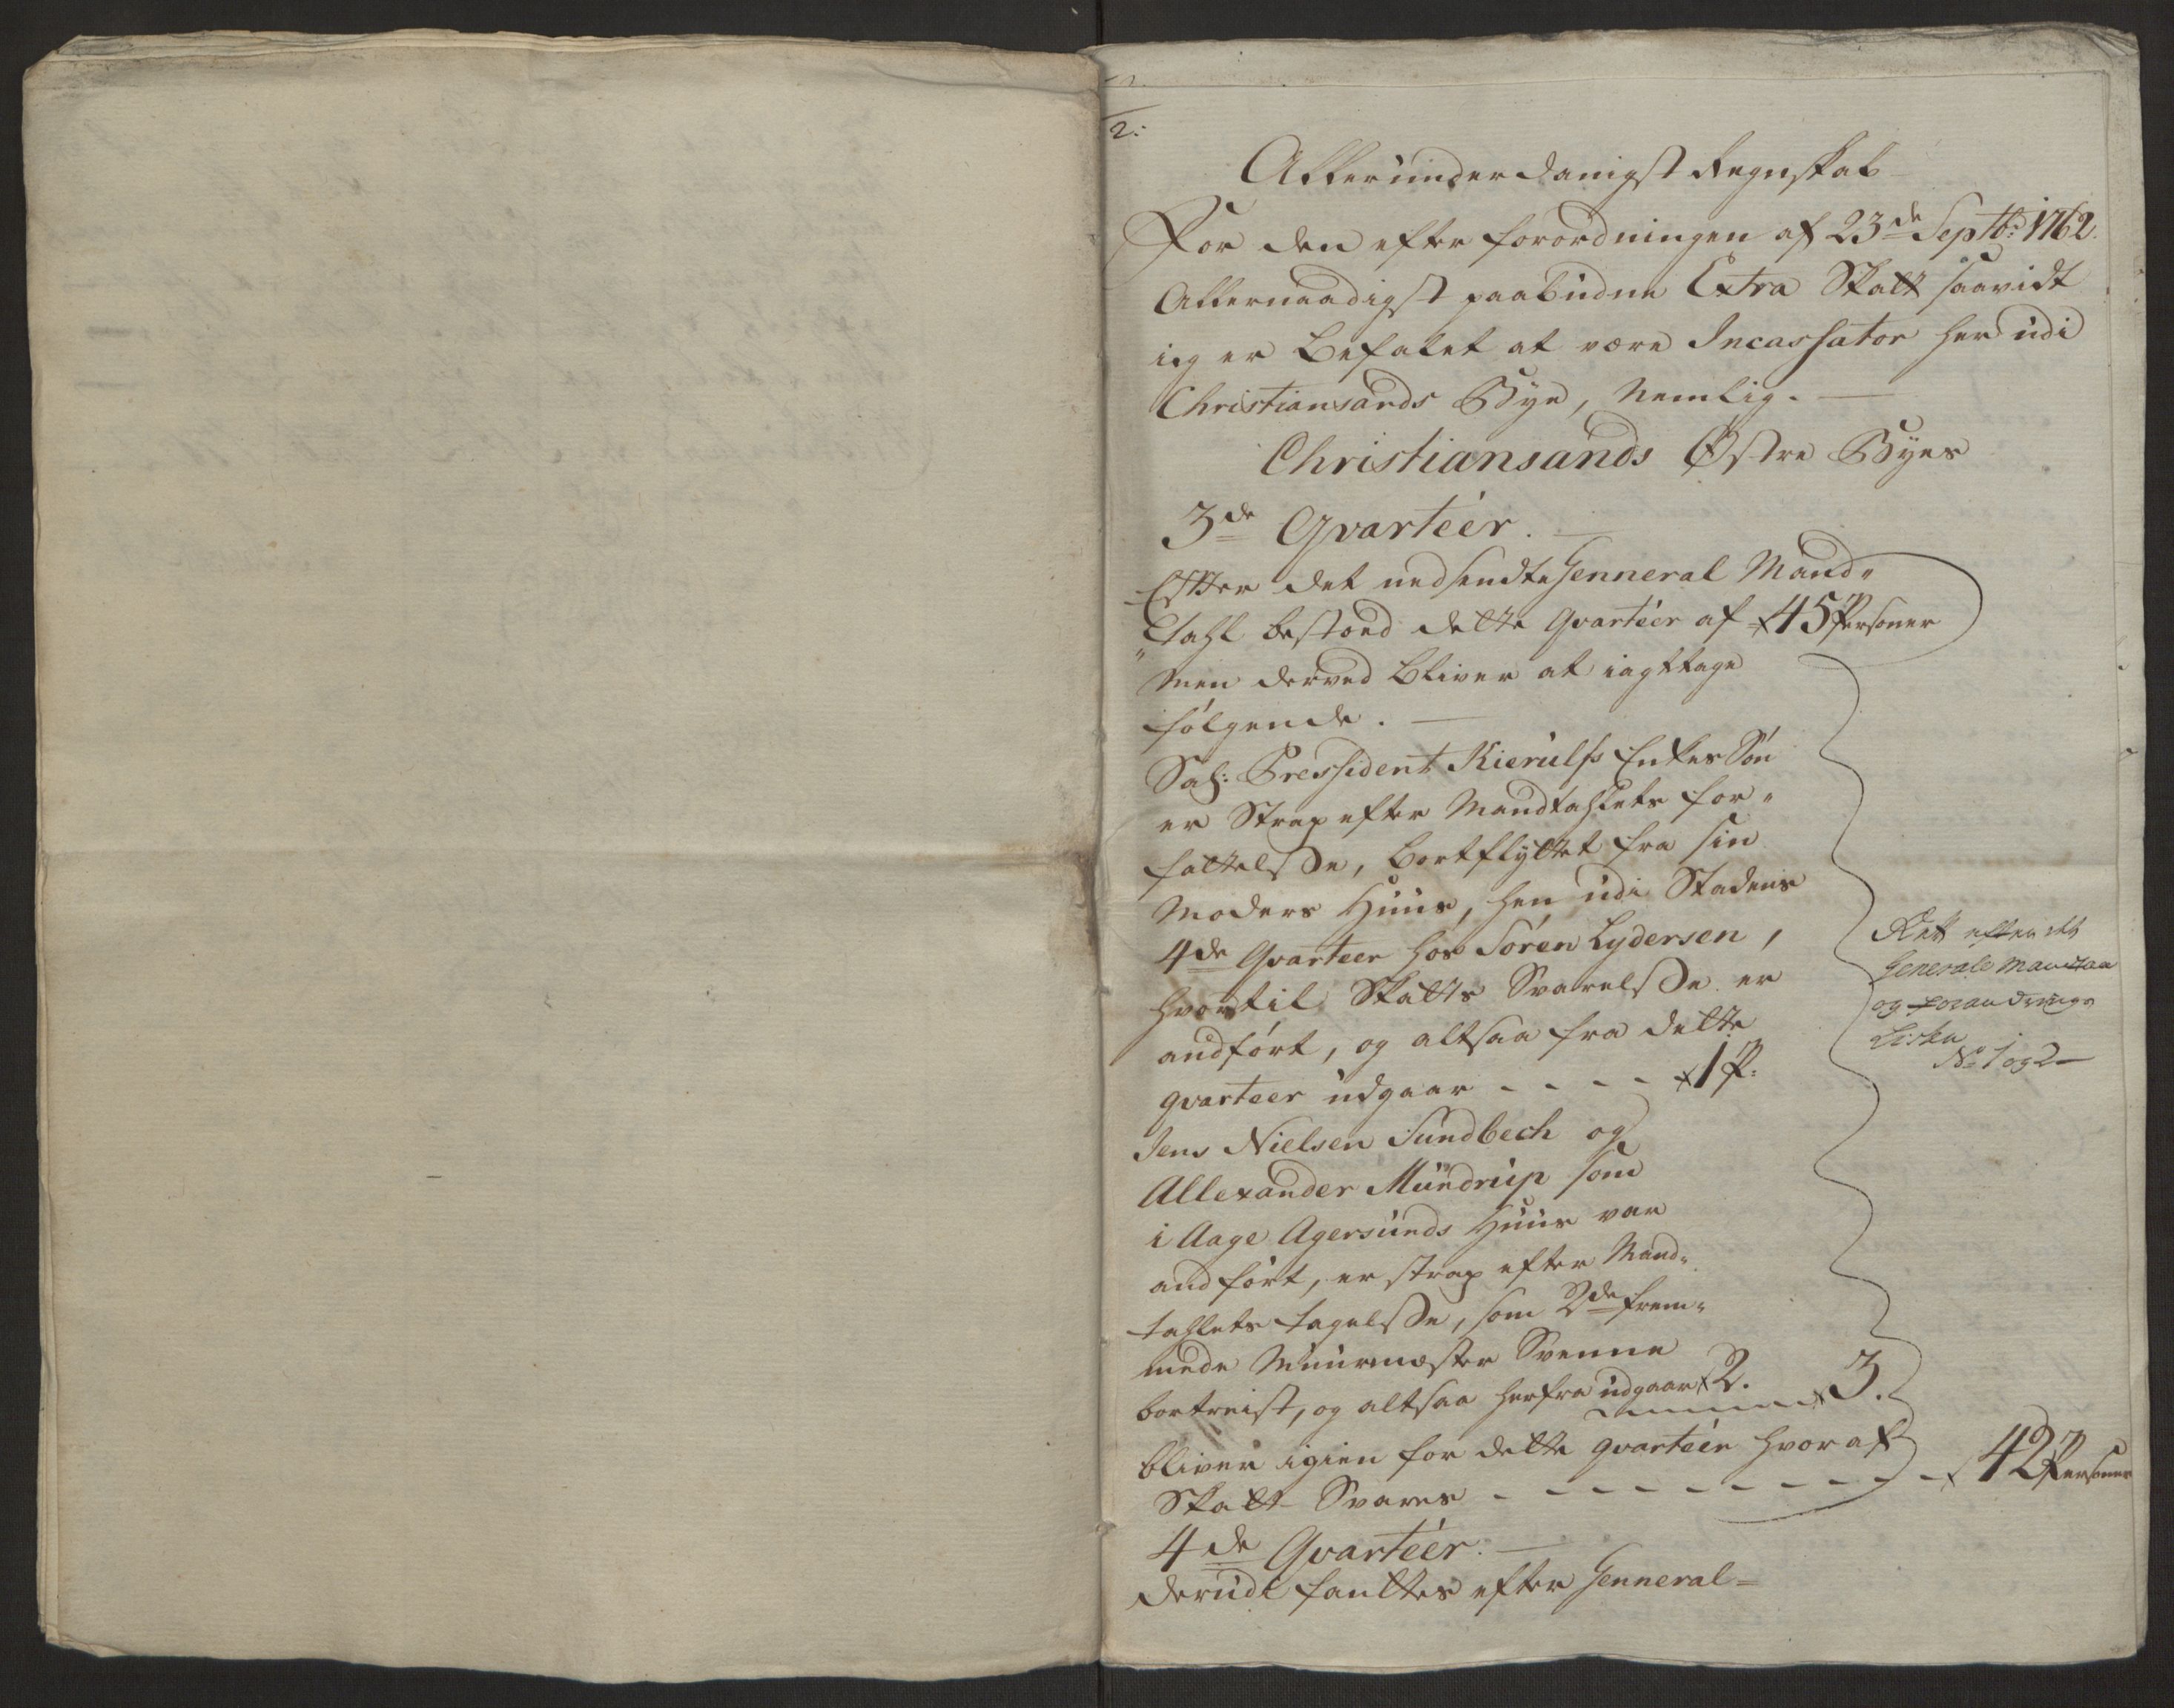 2:
Allerunderdanigst Regnskab
For den efter forordningen af 23de Septb: 1762.
Allernaadigst paabudne Extra Skatt saavidt
ieg er befalet at være Incassator her udi
Christiansands Bye, Nemlig. —
Christiansands Østre Byes
3de Qvarteer. —
Efter det nedsendte Genneral Mand„
„tahl bestoed dette Qvarteer af 45 Personer
Men derved bliver at iagttage
følgende. —
Sal: Pressident Kierulfs Enkes Søn
er Strax efter Mandtahlets for„
fattelse, bortflyttet fra sin
Moders Huus, hen udi Stadens
4de Qvarteer hos Søren Lydersen,
hvortil Skatts Svarelse er
andført, og altsaa fra dette
qvarteer udgaar - - - - 1 P:
Jens Nielsen Sundbech og
Allexander Mundrup som
i Aage Agersunds Huus var
andført, er strax efter Mand„
tahlets tagelse, som 2de frem„
mede Muurmæster Svenne
bortreist, og altsaa herfra udgaar 2. 3.
bliver igien for dette qvarteer hvoraf
Skatt Svares - - - - - - - - - 42 Personer
Rett efter det
Generale Mandtall
og forandrings
Liste
No 1 og 2 —
4de Qvarteer. —
derudi fantes efter Genneral=